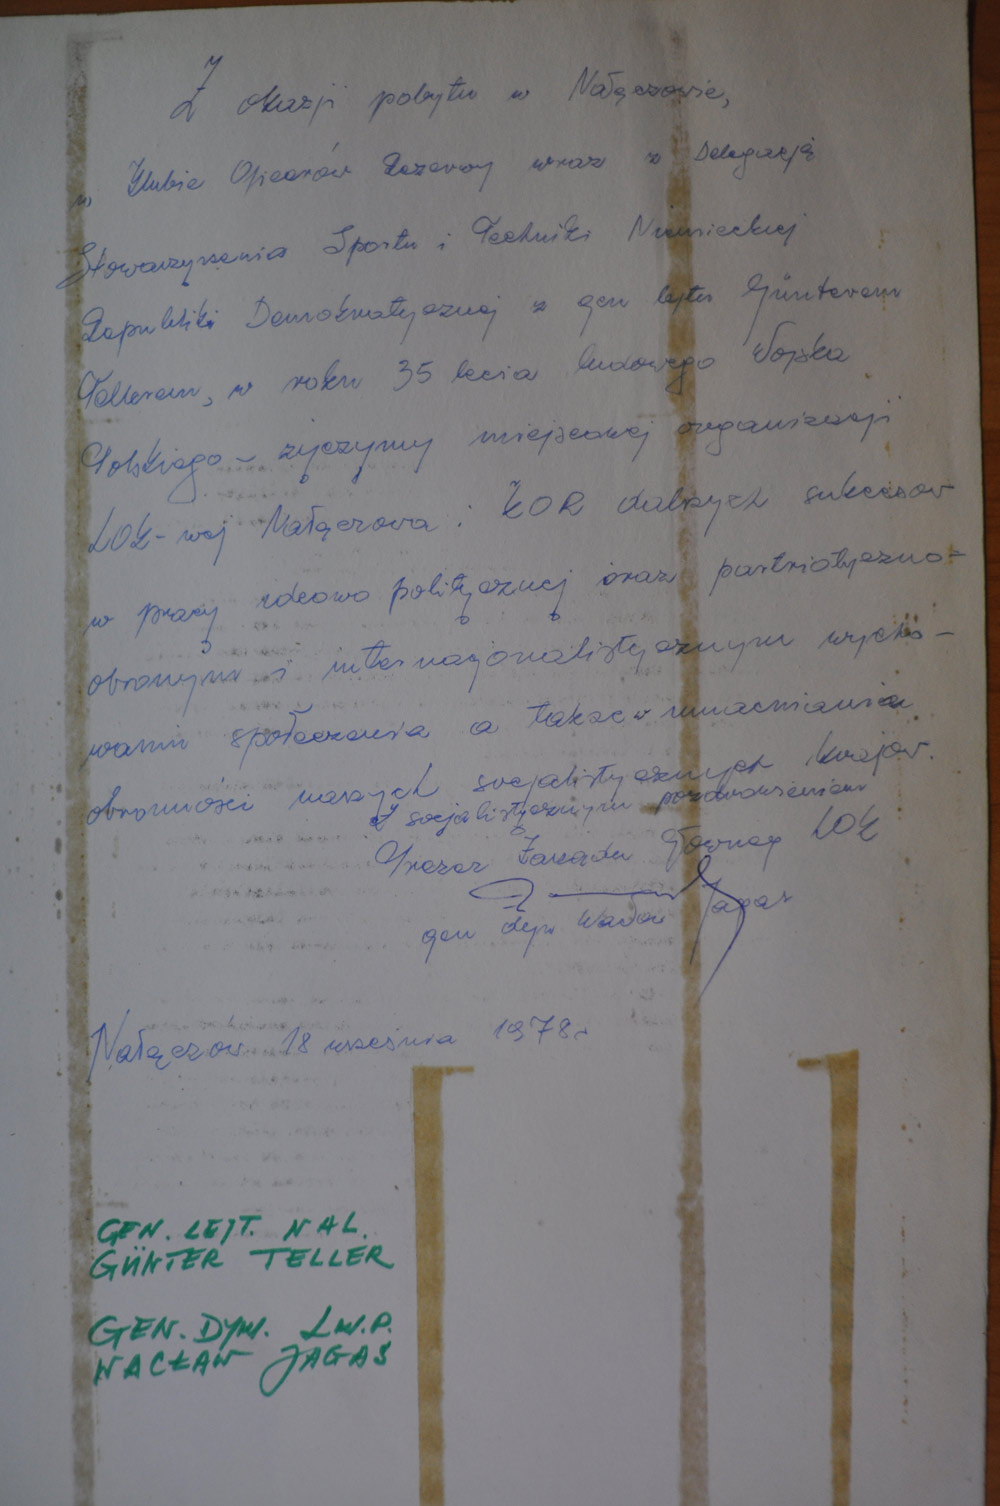 Z okazji pobytu w Nałęczowie,
w Klubie Oficerów Rezerwy wraz z Delegacją
Stowarzyszenia Sportu i Techniki Niemieckiej
Republiki Demokratycznej z gen lejtn Günterem
Tellerem, w roku 35 lecia ludowego Wojska
Polskiego – życzymy miejscowej organizacji
LOK- woj Nałęczowa i KOR dalszych sukcesów
w pracy ideowo politycznej oraz patriotyczno-
obronnym i internacjonalistycznym wycho-
waniu społeczenia a także w umacnianiu
obronności naszych socjalistycznych krajów.
Z socjalistycznym pozdrowieniem
Prezes Zarządu Głównego LOK
gen dyw Wacław Jagas
Nałęczów 18 września 1978r
GEN. LEJT. NAL.
GÜNTER TELLER
GEN. DYW. L.W.P.
WACŁAW JAGAS